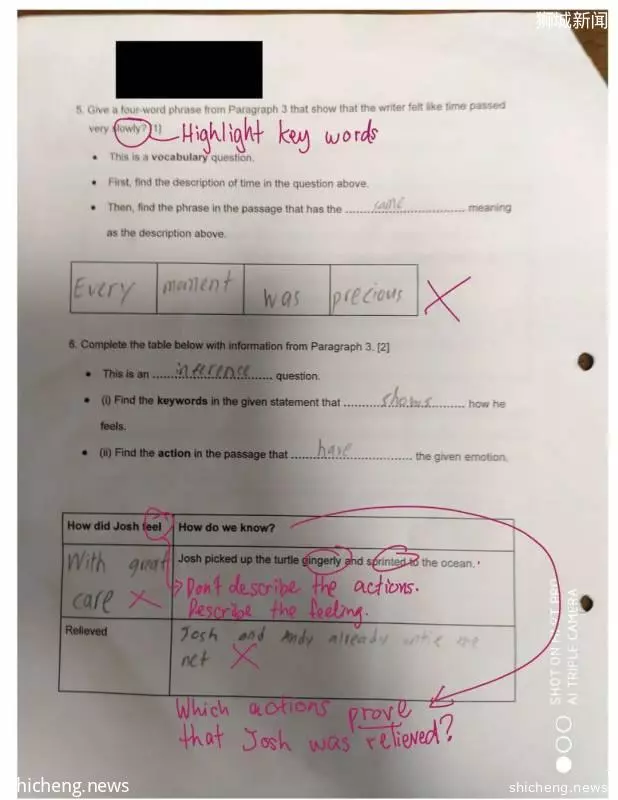 狮城新闻
5. Give a four-word phrase from Paragraph 3 that show that the writer felt like time passed
very slowly? [1] Highlight key words
• This is a vocabulary question.
• First, find the description of time in the question above.
• Then, find the phrase in the passage that has the same meaning
as the description above.
Every moment was precious
6. Complete the table below with information from Paragraph 3. [2]
• This is an inference question.
• (i) Find the keywords in the given statement that shows how he
feels.
• (ii) Find the action in the passage that have the given emotion.
How did Josh feel How do we know?
With great Josh picked up the turtle gingerly and sprinted to the ocean.
care Don't describe the actions.
Describe the feeling.
Relieved Josh and Andy already untie the
net
Which actions prove
that Josh was relieved?
SHOT ON
AI TRIPLE CAMERA
shicheng.news
shicheng.news